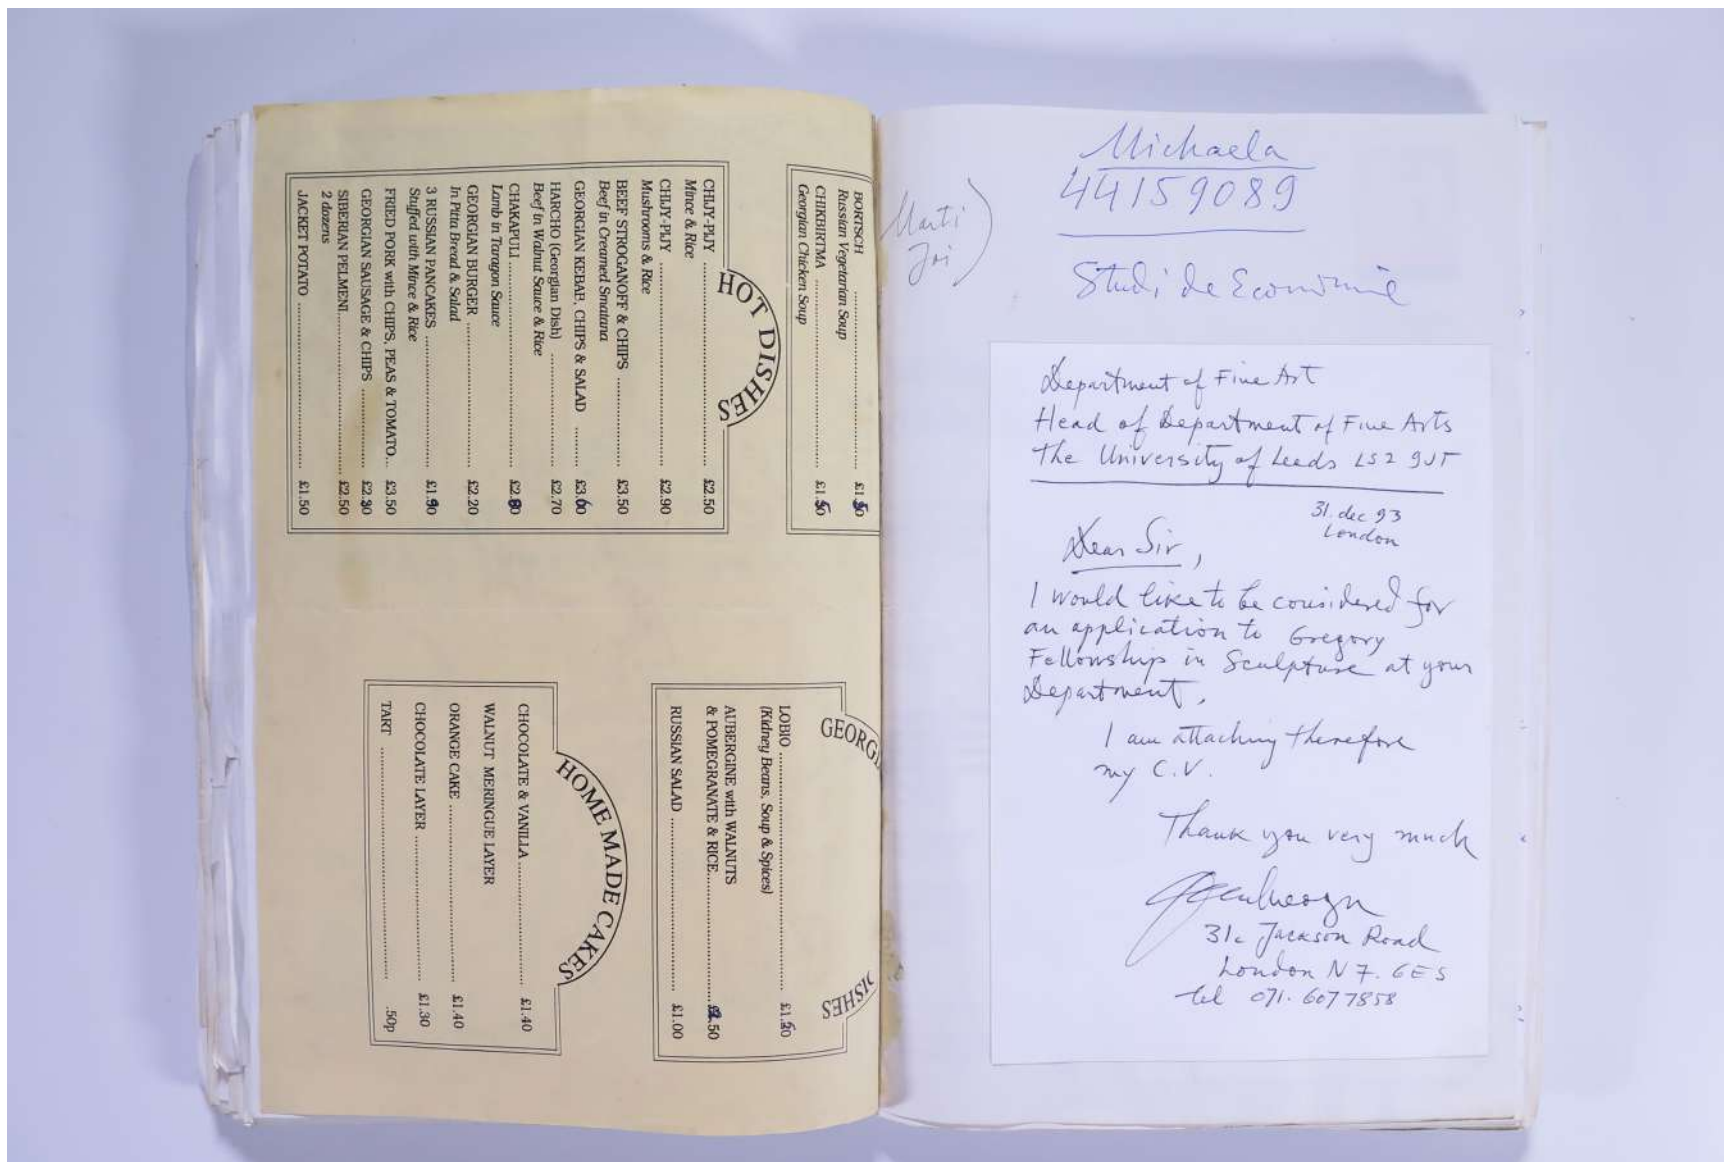 BORTSCH ............ £1.50
Russian Vegetarian Soup
CHIKBIRTMA ............ £1.50
Georgian Chicken Soup
HOT DISHES
CHIJY-PIJY ............ £2.50
Mince & Rice
CHIJY-PIJY ............ £2.90
Mushrooms & Rice
BEEF STROGANOFF & CHIPS ............ £3.50
Beef in Creamed Smatana
GEORGIAN KEBAB, CHIPS & SALAD ............ £3.60
HARCHO (Georgian Dish) ............ £2.70
Beef in Walnut Sauce & Rice
CHAKAPULI ............ £2.80
Lamb in Taragon Sauce
GEORGIAN BURGER ............ £2.20
In Pitta Bread & Salad
3 RUSSIAN PANCAKES ............ £1.90
Stuffed with Mince & Rice
FRIED PORK with CHIPS, PEAS & TOMATO... £3.50
GEORGIAN SAUSAGE & CHIPS ............
SIBERIAN PELMENI ............ £2.50
2 dozens
JACKET POTATO ............ £1.50
GEORGI
DISHES
LOBIO ............
(Kidney Beans, Soup & Spices)
AUBERGINE with WALNUTS
& POMEGRANATE & RICE ............ .50
RUSSIAN SALAD ............ £1.00
HOME MADE CAKES
CHOCOLATE & VANILLA ............ £1.40
WALNUT MERINGUE LAYER
ORANGE CAKE ............ £1.40
CHOCOLATE LAYER ............ £1.30
TART ............ .50p
Michaela
44159089
Marti
Joi
Studi de Economie
Department of Fine Art
Head of Department of Fine Arts
the University of Leeds LS2 9JT
31. dec 93
London
Dear Sir,
I would like to be considered for
an application to Gregory
Fellowship in Sculpture at your
Department.
I am attaching therefore
my C.V.
Thank you very much
31c Jackson Road
London N7. 6ES
tel 071. 607 7858